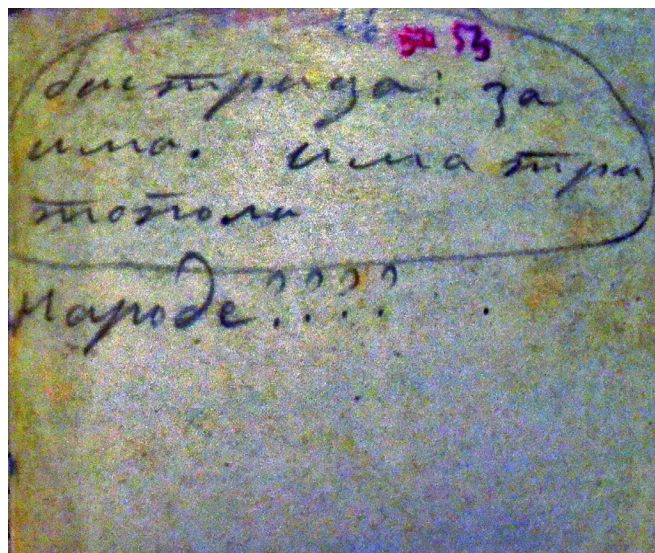 53
бистрица: за
има. има три
тополи
Народе????